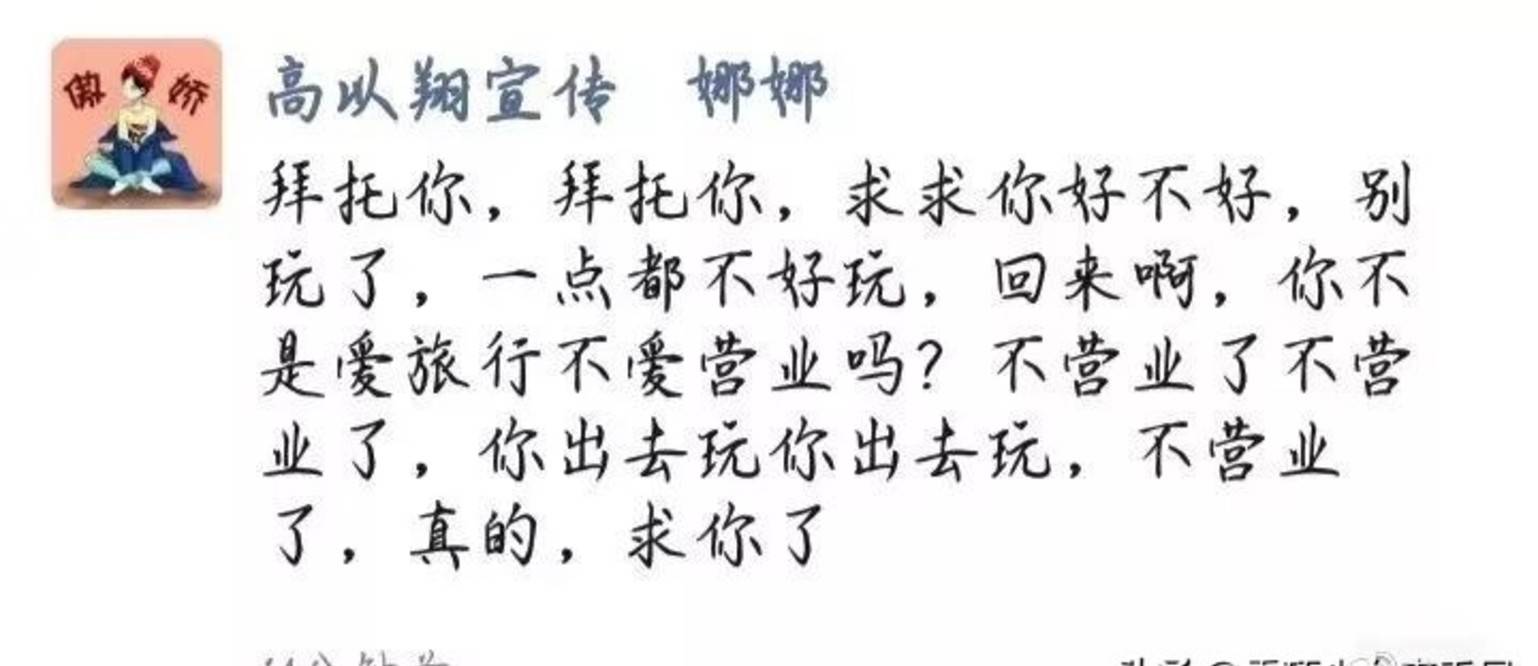 傲 娇
高以翔宣传 娜娜
拜托你，拜托你，求求你好不好，别
玩了，一点都不好玩，回来啊，你不
是爱旅行不爱营业吗？不营业了不营
业了，你出去玩你出去玩，不营业
了，真的，求你了